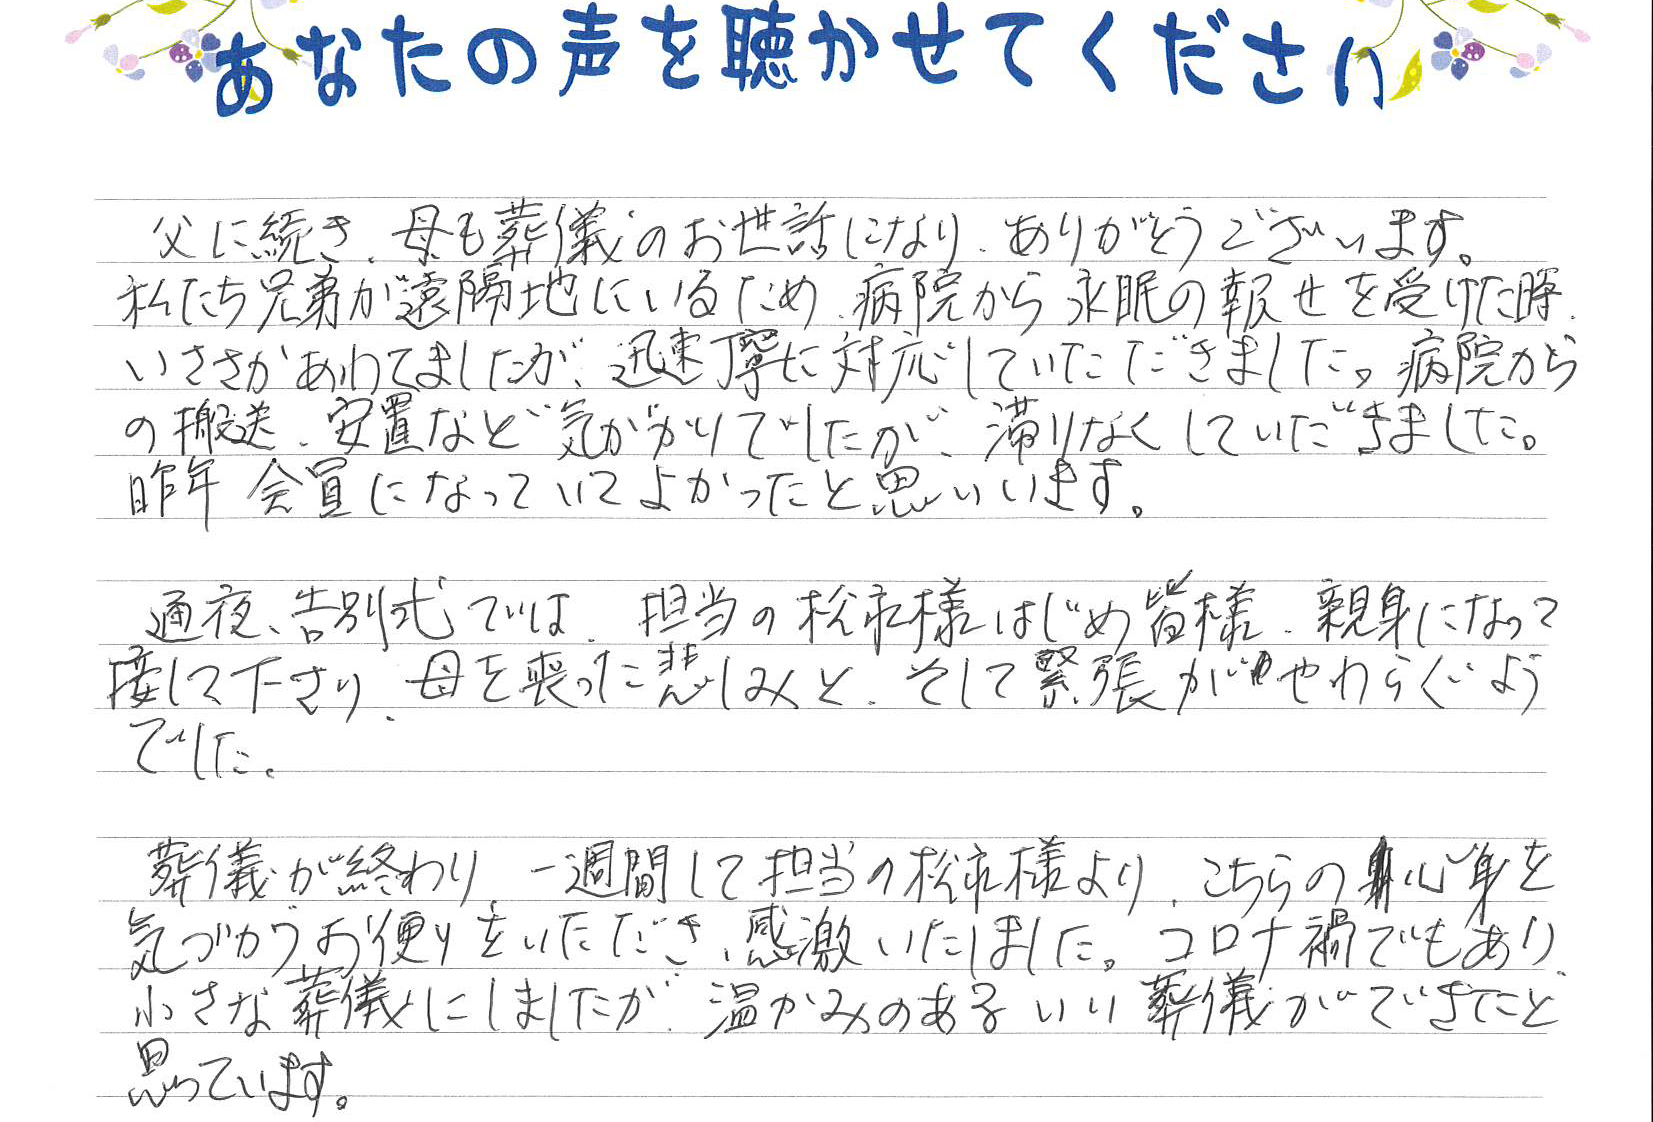 あなたの声を聴かせてください
父に続き、母も葬儀のお世話になり、ありがとうございます。
私たち兄弟が遠隔地にいるため、病院から永眠の報せを受けた時、
いささかあわてましたが、迅速丁寧に対応していただきました。病院から
の搬送、安置など気がかりでしたが、滞りなくしていだきました。
昨年会員になっていてよかったと思いいます。
通夜、告別式では、担当の松永様はじめ皆様、親身になって
接して下さり、母を喪った悲しみと、そして緊張がやわらぐよう
でした。
葬儀が終わり、一週間して担当の松永様より、こちらの心身を
気づかうお便りをいただき、感激いたしました。コロナ禍でもあり、
小さな葬儀にしましたが、温かみのあるいい葬儀ができたと
思っています。